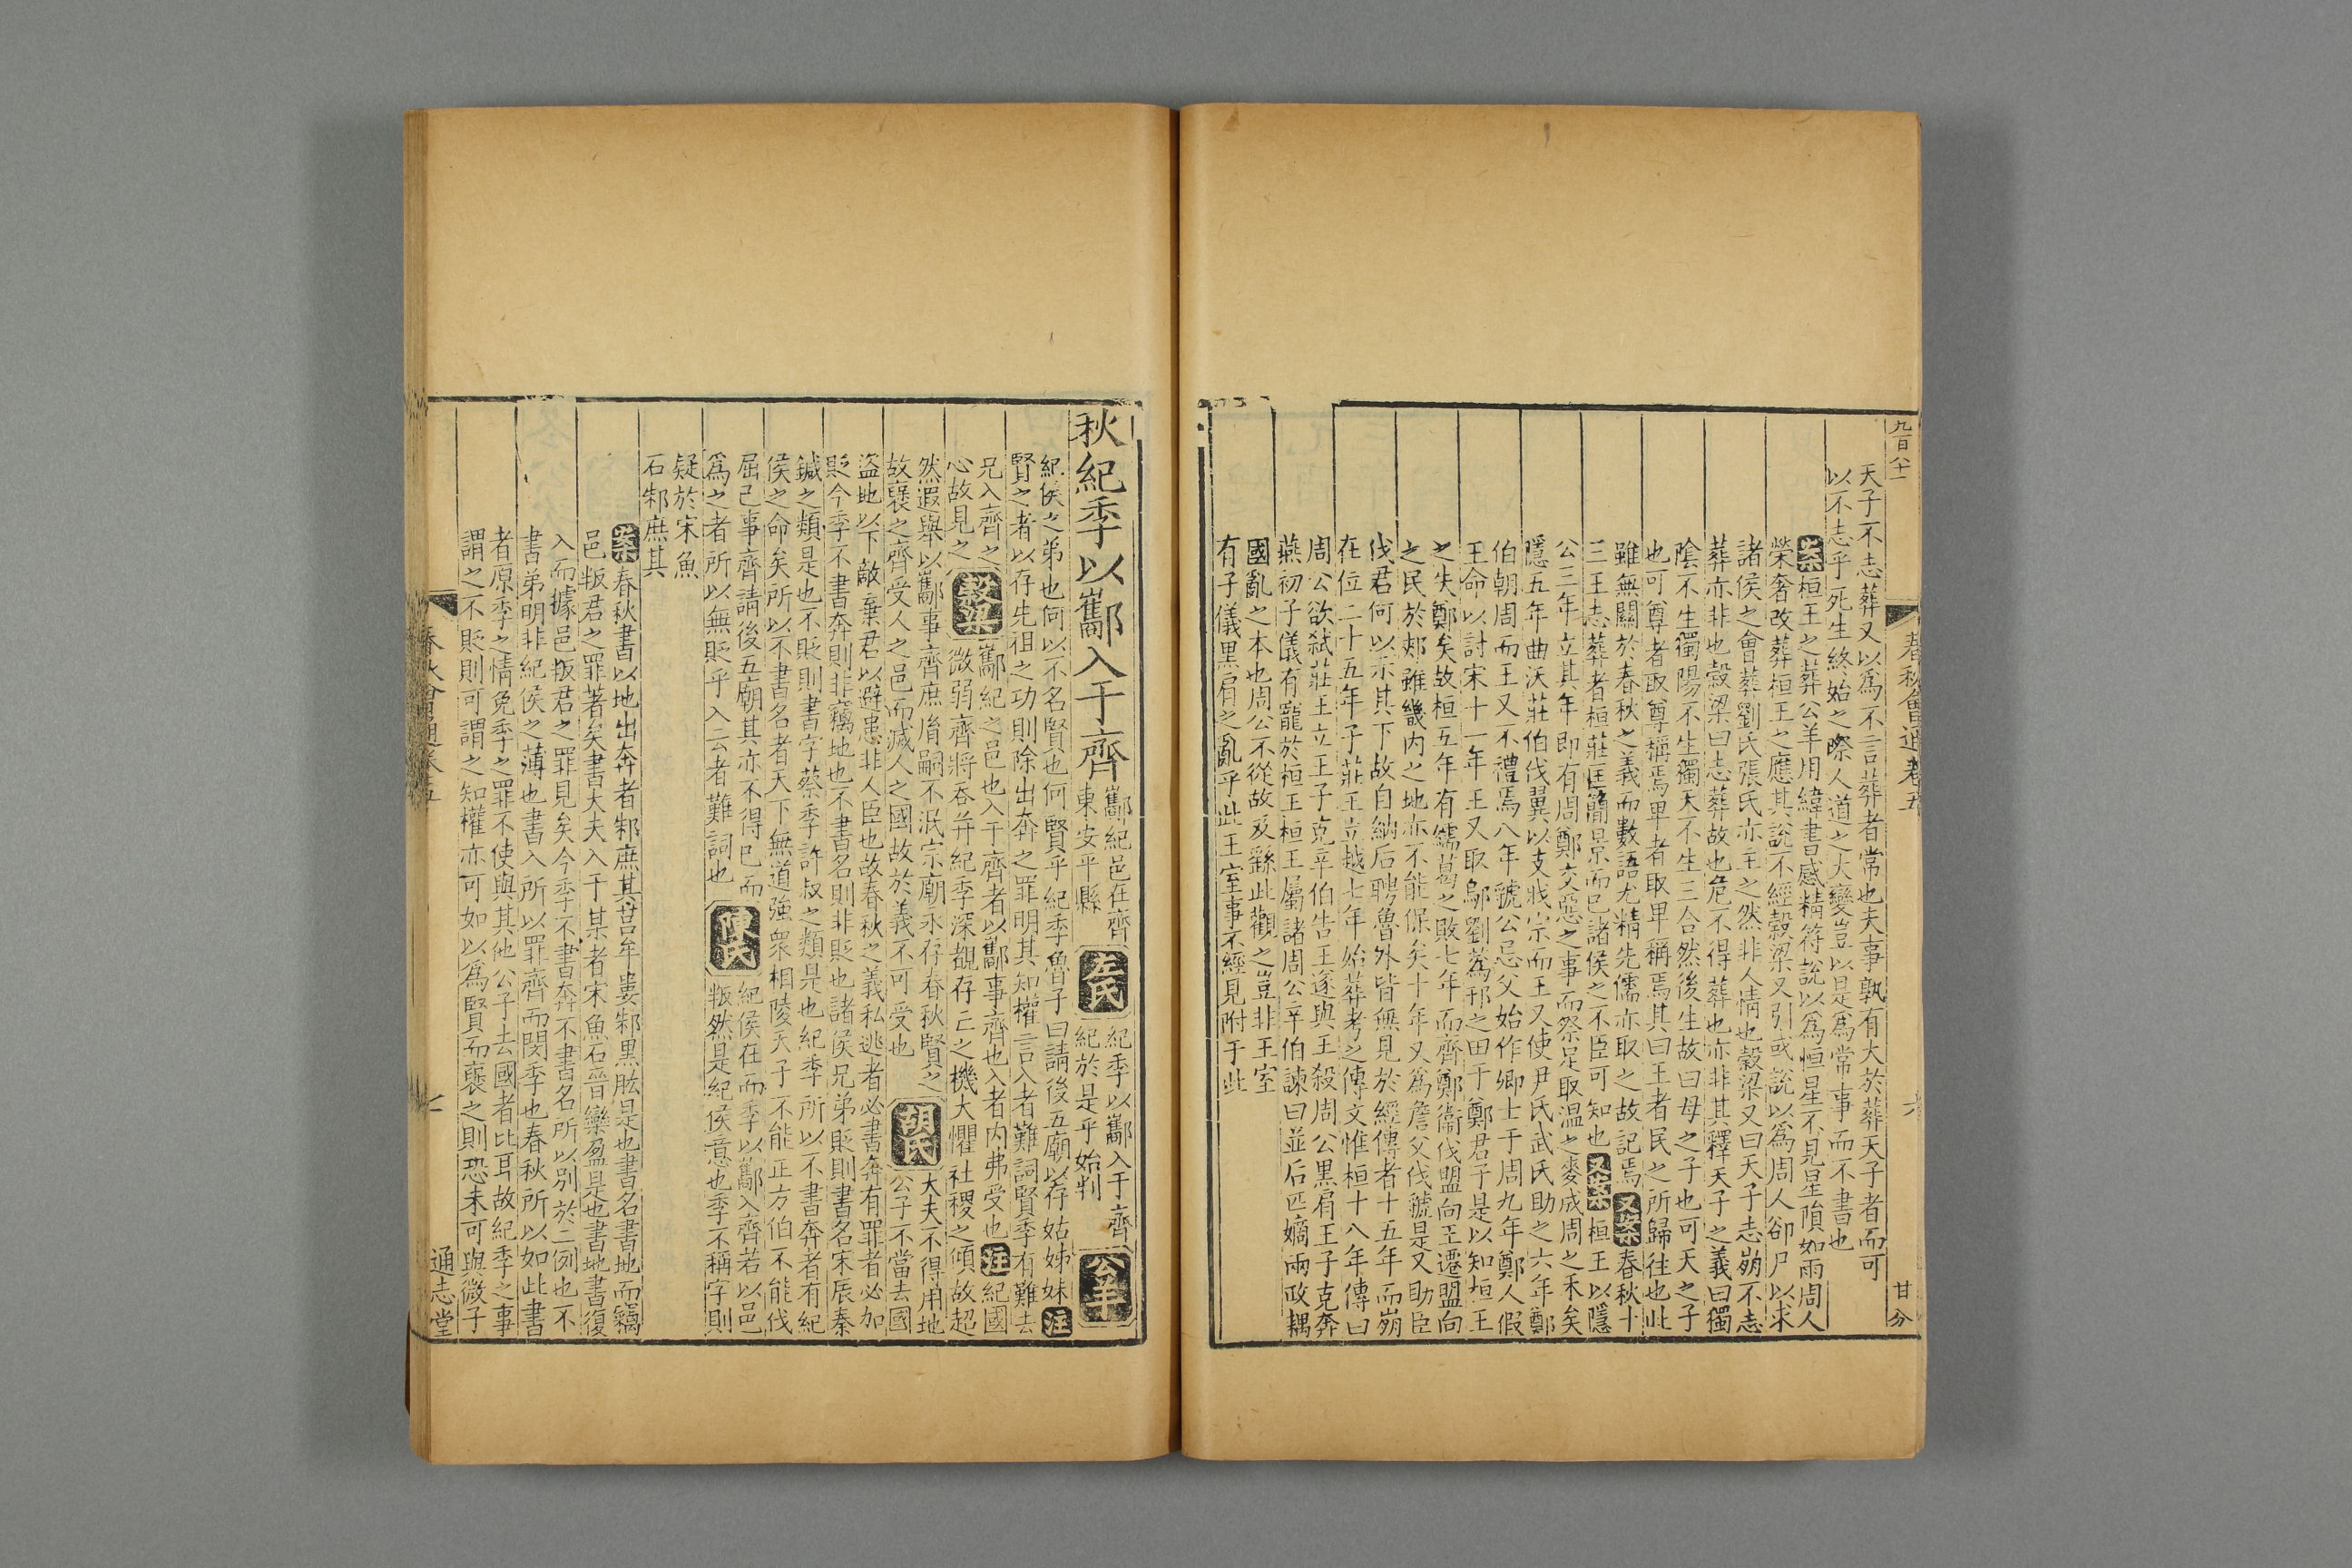 九百八十一
春秋會通卷五
六
甘分
天子不志葬又以爲不言葬者常也夫事孰有大於葬天子者而可
以不志乎死生終始之際人道之大變豈以是爲常事而不書也
案桓王之葬公羊用緯書感精符說以爲恒星不見星隕如雨周人
榮奢改葬桓王之應其說不經穀梁又引或說以爲周人卻尸以求
諸侯之會葬劉氏張氏亦主之然非人情也穀梁又曰天子志崩不志
葬亦非也穀梁曰志葬故也危不得葬也亦非其釋天子之義曰獨
陰不生獨陽不生獨天不生三合然後生故曰母之子也可天之子
也可尊者取尊稱焉卑者取卑稱焉其曰王者民之所歸往也此
雖無關於春秋之義而數語尤精先儒亦取之故記焉又案春秋十
三王志葬者桓莊匡簡景而已諸侯之不臣可知也又案桓王以隱
公三年立其年即有周鄭交惡之事而祭足取溫之麥成周之禾矣
隱五年曲沃莊伯伐翼以支戕宗而王又使尹氏武氏助之六年鄭
伯朝周而王又不禮焉八年虢公忌父始作卿士于周九年鄭人假
王命以討宋十一年王又取鄔劉蒍邘之田于鄭君子是以知垣王
之失鄭矣故桓五年有繻葛之敗七年而齊鄭衞伐盟向王遷盟向
之民於郟雖畿内之地亦不能保矣十年又爲詹父伐虢是又助臣
伐君何以示其下故自納后聘魯外皆無見於經傳者十五年而崩
在位二十五年子莊王立越七年始葬考之傳文惟桓十八年傳曰
周公欲弑莊王立王子克辛伯告王遂與王殺周公黑肩王子克奔
燕初子儀有寵於桓王桓王屬諸周公辛伯諫曰並后匹嫡兩政耦
國亂之本也周公不從故及繇此觀之豈非王室
有子儀黑肩之亂乎此王室事不經見附于此
秋紀季以酅入于齊
酅紀邑在齊
東安平縣
左氏
紀季以酅入于齊
紀於是乎始判
公羊
紀侯之弟也何以不名賢也何賢乎紀季魯子曰請後五廟以存姑姊妹注
賢之者以存先祖之功則除出奔之罪明其知權言入者難詞賢季有難去
兄入齊之
心故見之
穀梁
酅紀之邑也入于齊者以酅事齊也入者内弗受也注紀國
微弱齊將吞并紀季深覩存亡之機大懼社稷之傾故超
然遐舉以酅事齊庶胤嗣不泯宗廟永存春秋賢之
故襃之齊受人之邑而滅人之國故於義不可受也
胡氏
大夫不得用地
公子不當去國
盜地以下敵棄君以避患非人臣也故春秋之義私逃者必書奔有罪者必加
貶今季不書奔則非竊地也不書名則非貶也諸侯兄弟貶則書名宋辰秦
鍼之類是也不貶則書字蔡季許叔之類是也紀季所以不書奔者有紀
侯之命矣所以不書名者天下無道強衆相陵天子不能正方伯不能伐
屈己事齊請後五廟其亦不得已而
爲之者所以無貶乎入云者難詞也
陳氏
紀侯在而季以酅入齊若以邑
叛然是紀侯意也季不稱字則
疑於宋魚
石邾庶其
案春秋書以地出奔者邾庶其莒牟婁邾黑肱是也書名書地而竊
邑叛君之罪著矣書大夫入于某者宋魚石晉欒盈是也書地書復
入而據邑叛君之罪見矣今季不書奔不書名所以别於二例也不
書弟明非紀侯之薄也書入所以罪齊而閔季也春秋所以如此書
者原季之情免季之罪不使與其他公子去國者比耳故紀季之事
謂之不貶則可謂之知權亦可如以爲賢而襃之則恐未可與微子
春秋會通卷五
七
通志堂